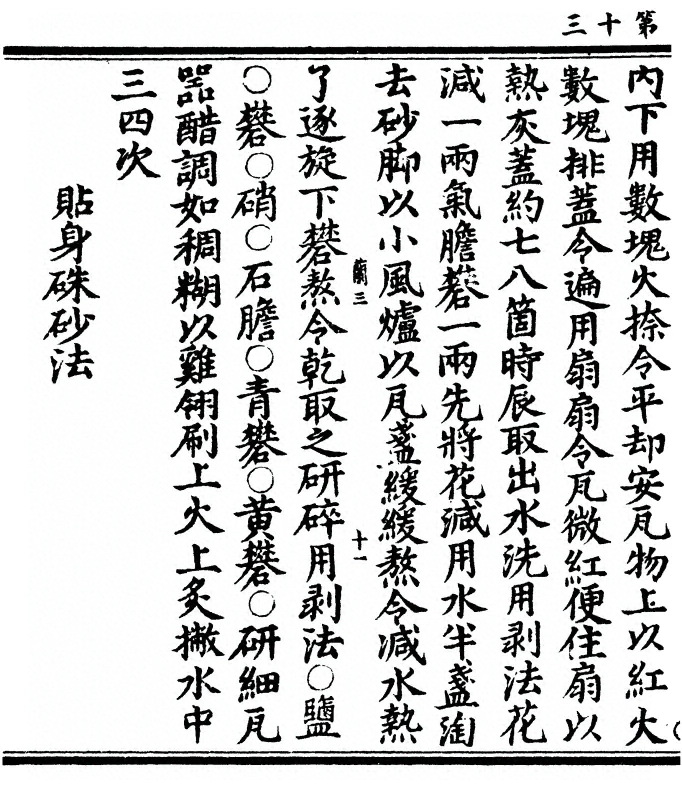 第十三
內下用數塊火捺令平却安瓦物上以紅火
數塊排蓋令遍用扇扇令瓦微紅便住扇以
熱灰蓋約七八箇時辰取出水洗用剥法花
減一兩氣膽礬一兩先將花減用水半盞淘
去砂脚以小風爐以瓦盞緩緩熬令減水熱
蘭三
十一
了逐旋下礬熬令乾取之研碎用剥法○鹽
○礬○硝○石膽○青礬○黃礬○研細瓦
器醋調如稠糊以雞翎刷上火上炙撇水中
三四次
貼身硃砂法